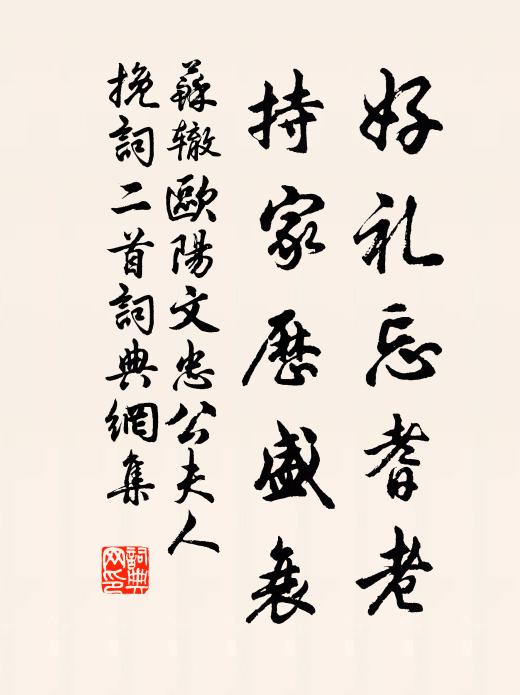 好礼忘耆老
持家歷盛衰
蘇辙歐陽文忠公夫人
挽詞二首詞典網集
詞典网印